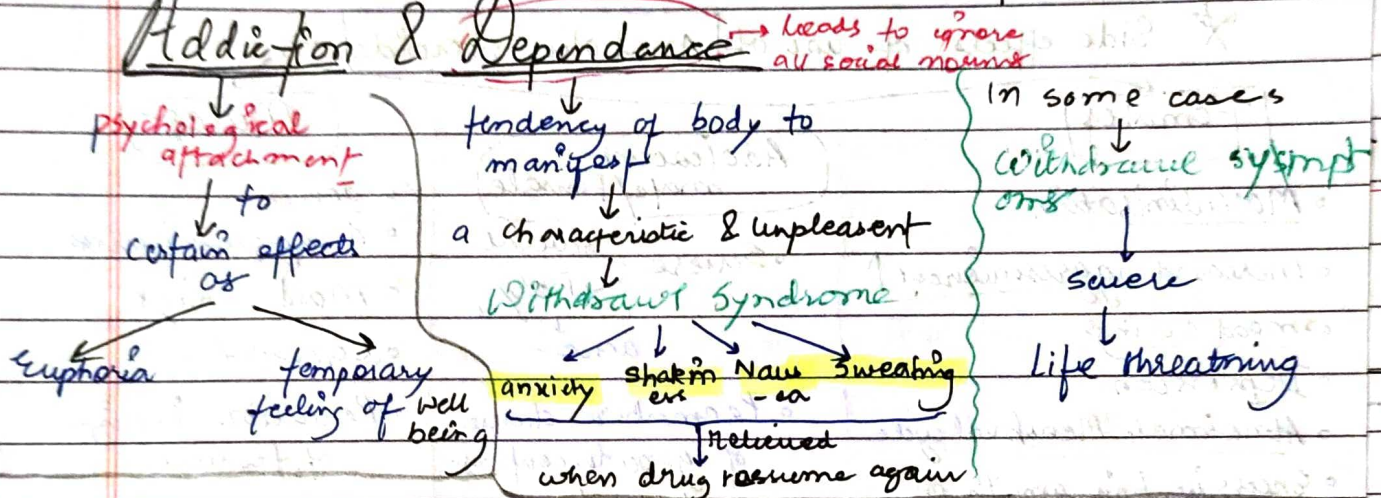 Addiction & Dependance → leads to ignore
all social norms
psychological
attachment
to
certain effects
as
Euphoria
temporary
feeling of well
being
tendency of body to
manifest
a characteristic & unpleasent
Withdrawl Syndrome
anxiety
shakin
ess
Naus
-ea
Sweating
relieved
when drug resume again
In some cases
Withdrawl sysmpt
oms
severe
Life threatning